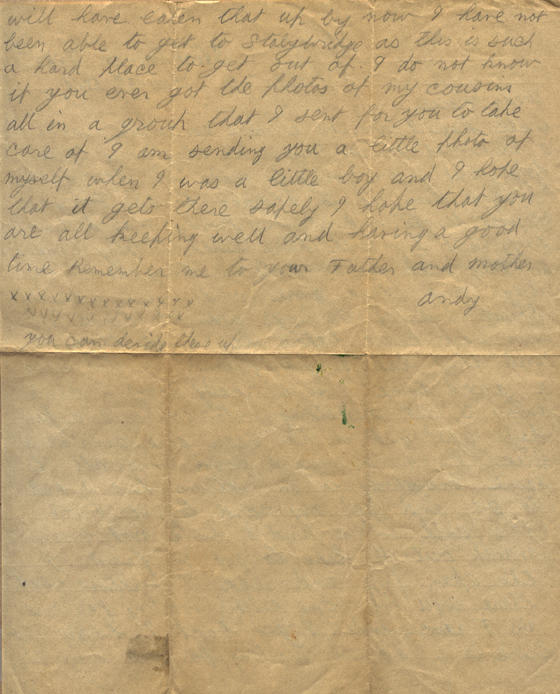 will have eaten that up by now I have not
been able to get to Stalybridge as this is such
a hard place to get out of. I do not know
if you ever got the photos of my cousins
all in a group that I sent for you to take
care of I am sending you a little photo of
myself when I was a little boy and I hope
that it gets there safely I hope that you
are all keeping well and having a good
time Remember me to your Father and mother
andy
x x x x x x x x x x x x x x
x x x x x x x x x x x x
you can divide these up